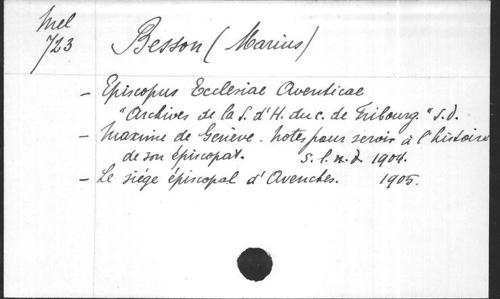 Mel
723
Besson (Marius)
- Episcopus Ecclesiae Aventicae
"Archives de la S. d'H. du c. de Fribourg." s.d.
- Maxime de Genève. Notes pour servir à l'histoire
de son épiscopat. s.l.n.d. 1904.
- Le siége épiscopal d'Avenches. 1905.